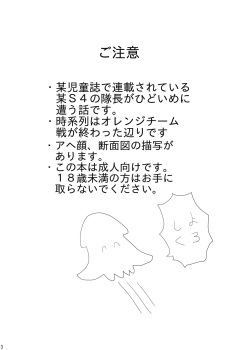 ご注意
・某児童誌で連載されている
某S4の隊長がひどいめに
遭う話です。
・時系列はオレンジチーム
戦が終わった辺りです
・アヘ顔、断面図の描写が
あります。
・この本は成人向けです。
１８歳未満の方はお手に
取らないでください。
3